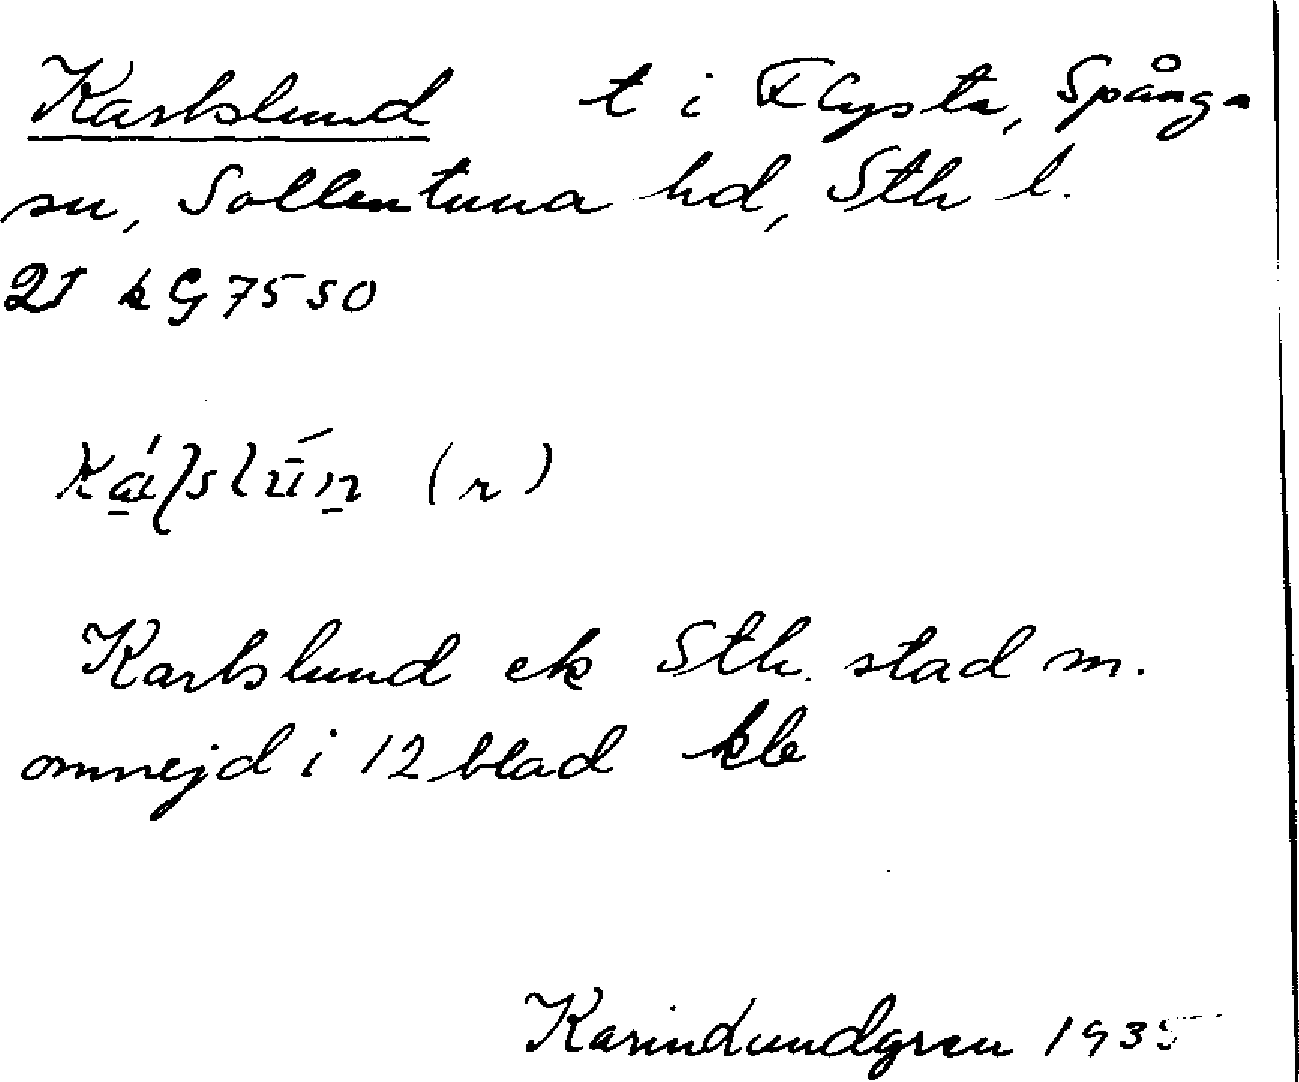 Karlslund t i Flysta, Spånga
sn, Sollentuna hd, Sth l.
kG 7550
(r)
Karlslund ek Sth. stad m.
omnejd i 12 blad
Karin Lundgren 1935